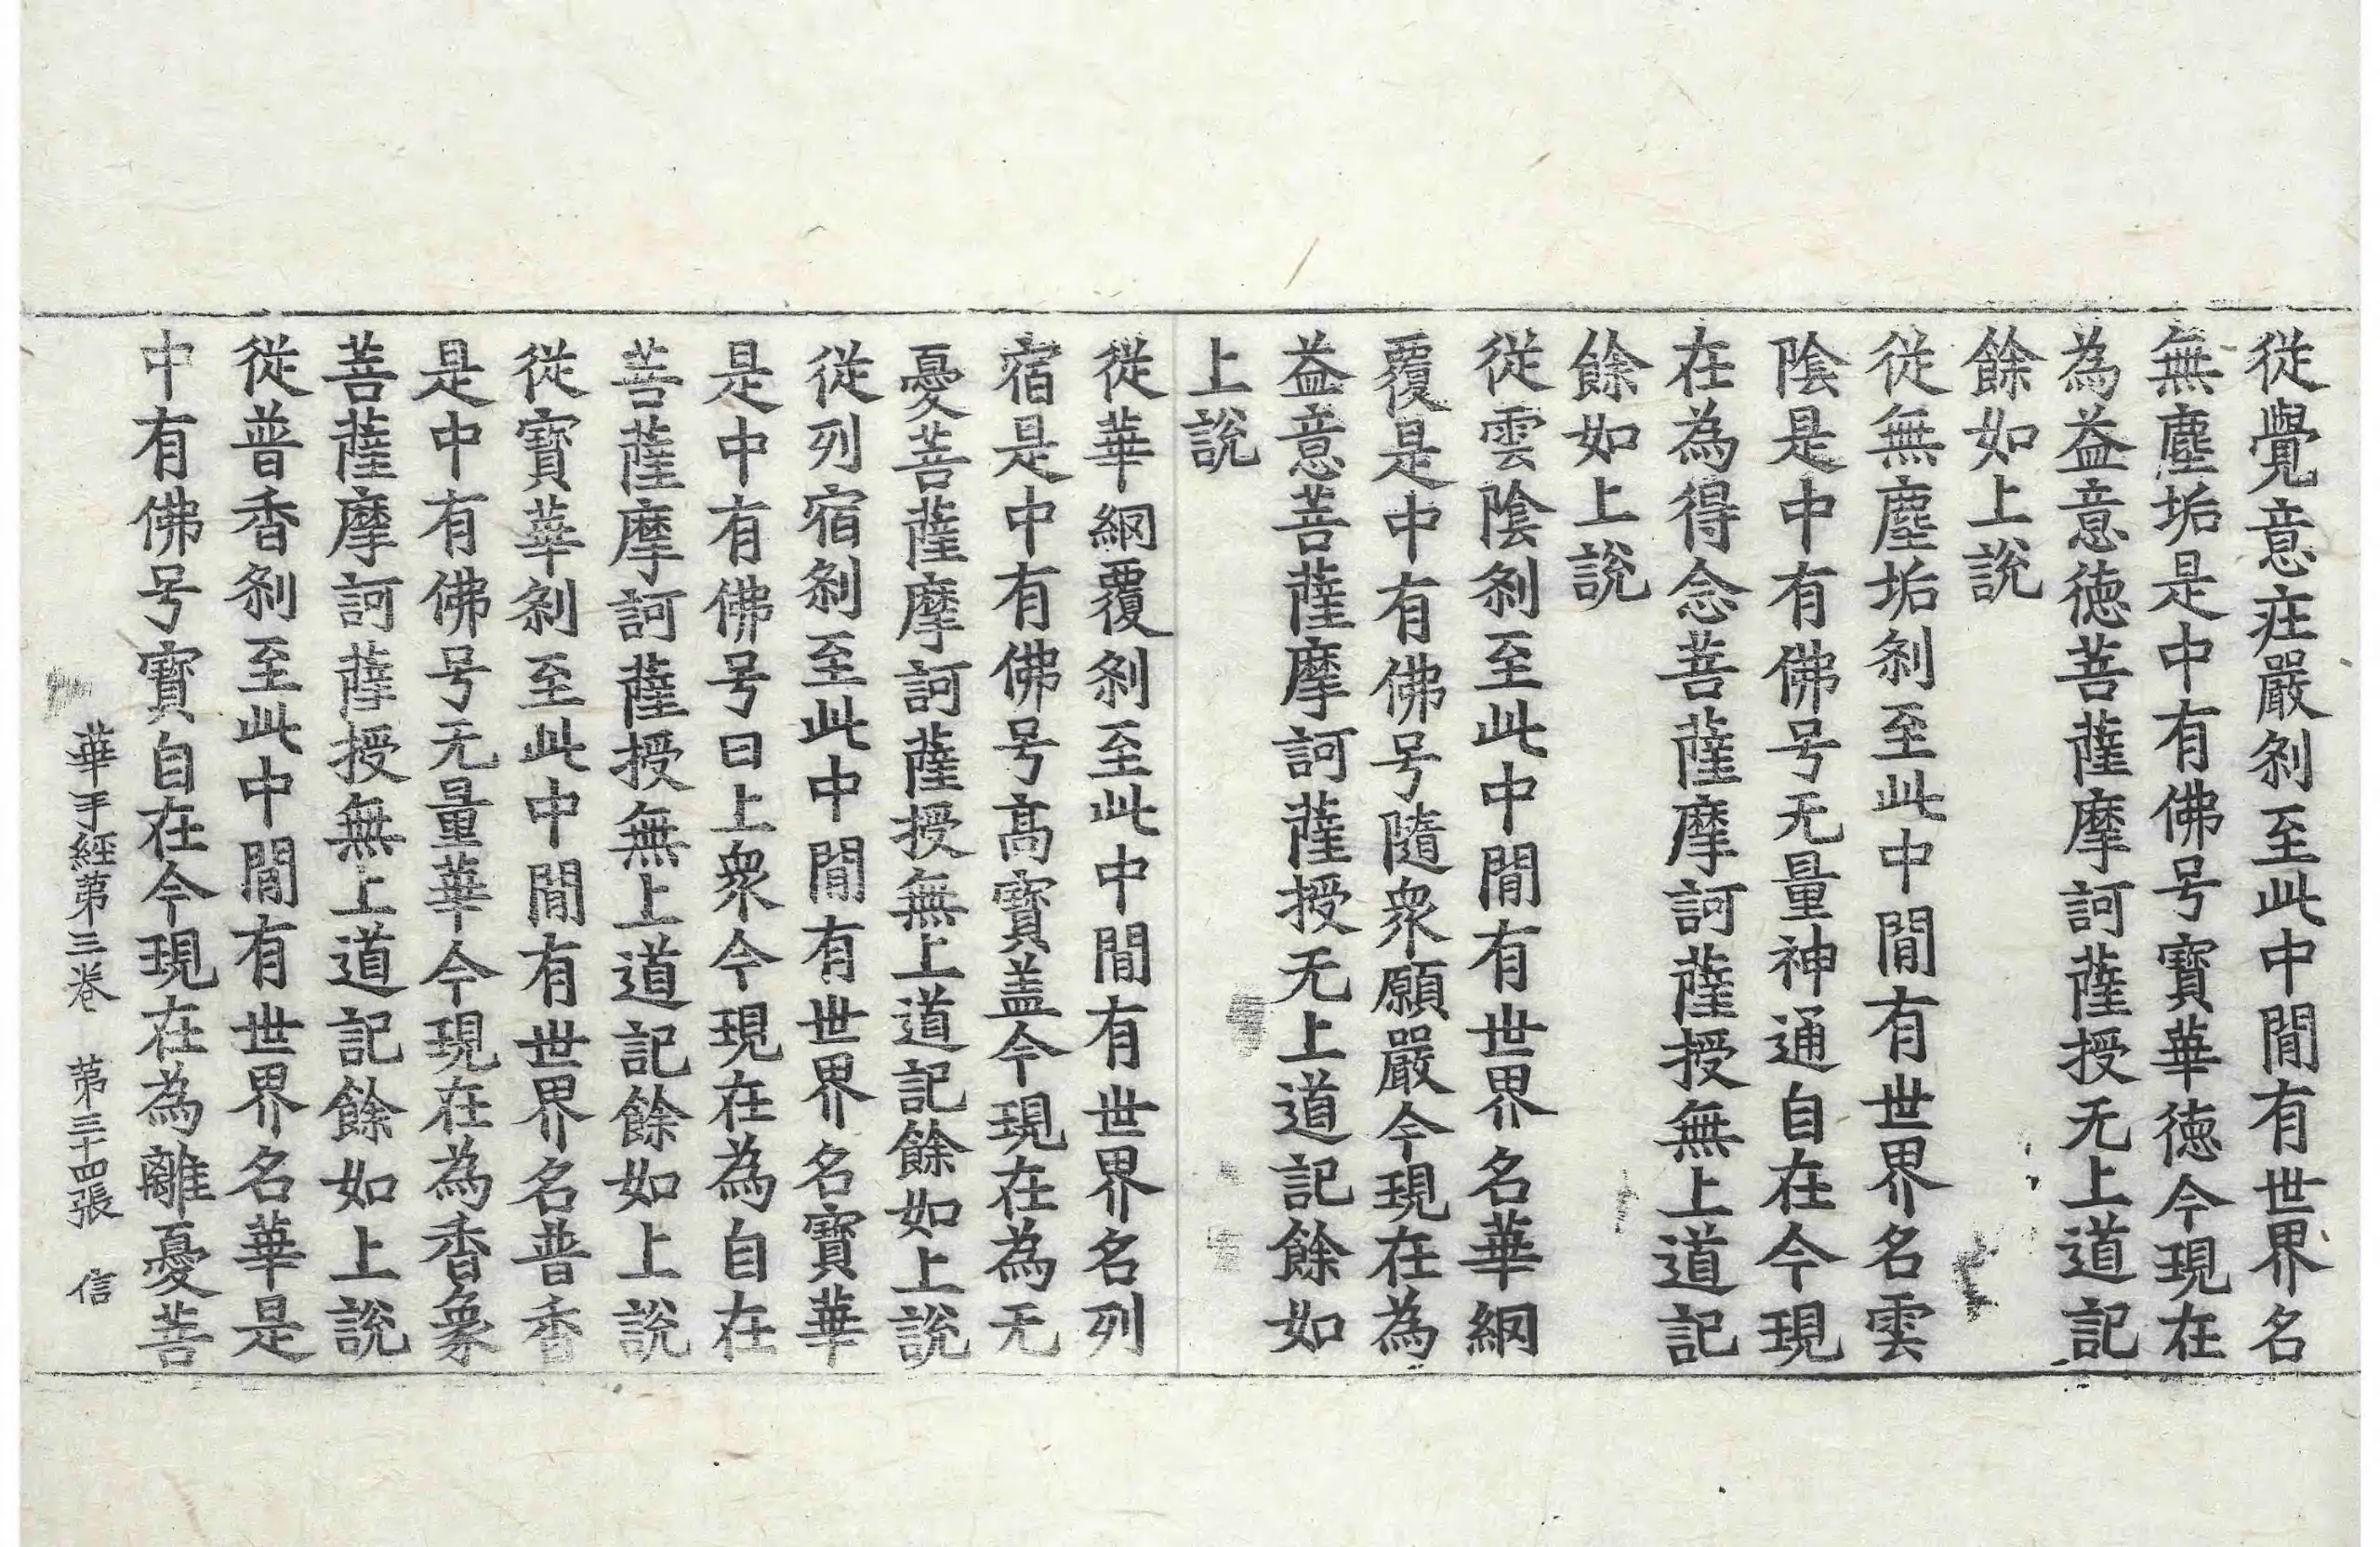 從覺意庄嚴刹至此中間有世界名
無塵垢是中有佛号寶華德今現在
為益意德菩薩摩訶薩授无上道記
餘如上說
從無塵垢刹至此中間有世界名雲
陰是中有佛号无量神通自在今現
在為得念菩薩摩訶薩授無上道記
餘如上說
從雲陰刹至此中間有世界名華網
覆是中有佛号隨衆願嚴今現在為
益意菩薩摩訶薩授无上道記餘如
上說
從華網覆刹至此中間有世界名列
宿是中有佛号高寶盖今現在為无
憂菩薩摩訶薩授無上道記餘如上說
從列宿刹至此中間有世界名寶華
是中有佛号曰上衆今現在為自在
菩薩摩訶薩授無上道記餘如上說
從寶華刹至此中間有世界名普香
是中有佛号无量華今現在為香象
菩薩摩訶薩授無上道記餘如上說
從普香刹至此中間有世界名華是
中有佛号寶自在今現在為離憂菩
華手經第三卷 第三十四張 信